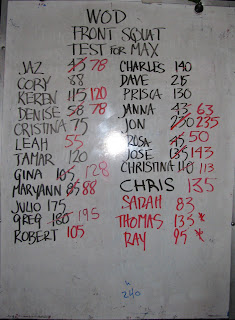 WOD
FRONT SQUAT
TEST for MAX
JAZ 43 78
CORY 88
KEREN 115 120
DENISE 58 78
CRISTINA 75
LEAH 55
TAMAR 120
GINA 105 128
MARYANN 85 88
JULIO 175
GREG 180 195
ROBERT 105
CHARLES 140
DAVE 215
PRISCA 130
JANNA 43 63
JON 230 235
ROSA 45 50
JOSE 135 143
CHRISTINA 110 113
CHRIS 135
SARAH 83
THOMAS 135 *
RAY 95 *
240